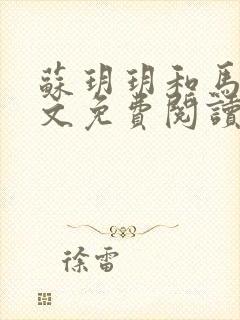 蘇玥玥和馬
文免費閱讀
徐雷